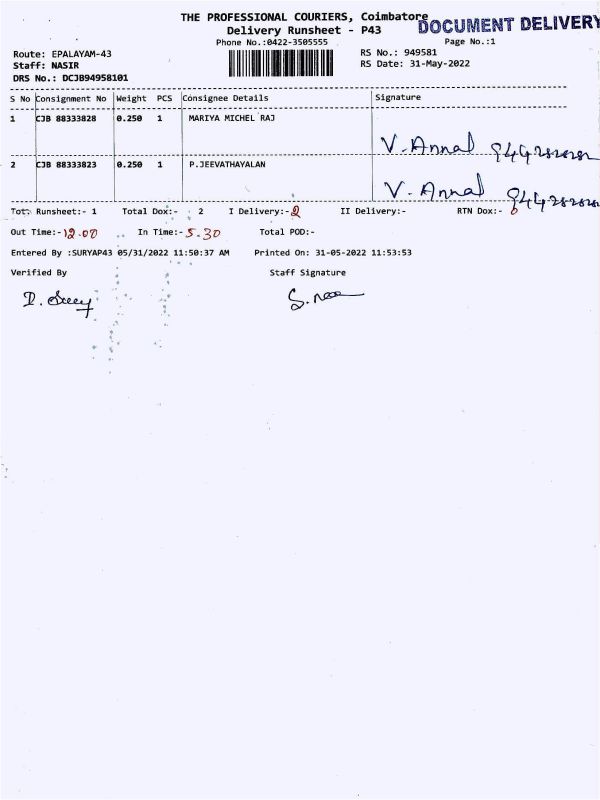 THE PROFESSIONAL COURIERS, Coimbatore
DOCUMENT DELIVERY
Delivery Runsheet - P43
Phone No.:0422-3505555
Page No.:1
Route: EPALAYAM-43
RS No.: 949581
Staff: NASIR
RS Date: 31-May-2022
DRS No.: DCJB94958101
S No Consignment No Weight PCS Consignee Details Signature
1 CJB 88333828 0.250 1 MARIYA MICHEL RAJ
V. Annal
2 CJB 88333823 0.250 1 P.JEEVATHAYALAN
V. Annal
Tot: Runsheet:- 1 Total Dox:- 2 I Delivery:- 2 II Delivery:- RTN Dox:- 0
Out Time:- 12.00 In Time:- 5.30 Total POD:-
Entered By :SURYAP43 05/31/2022 11:50:37 AM Printed On: 31-05-2022 11:53:53
Verified By Staff Signature